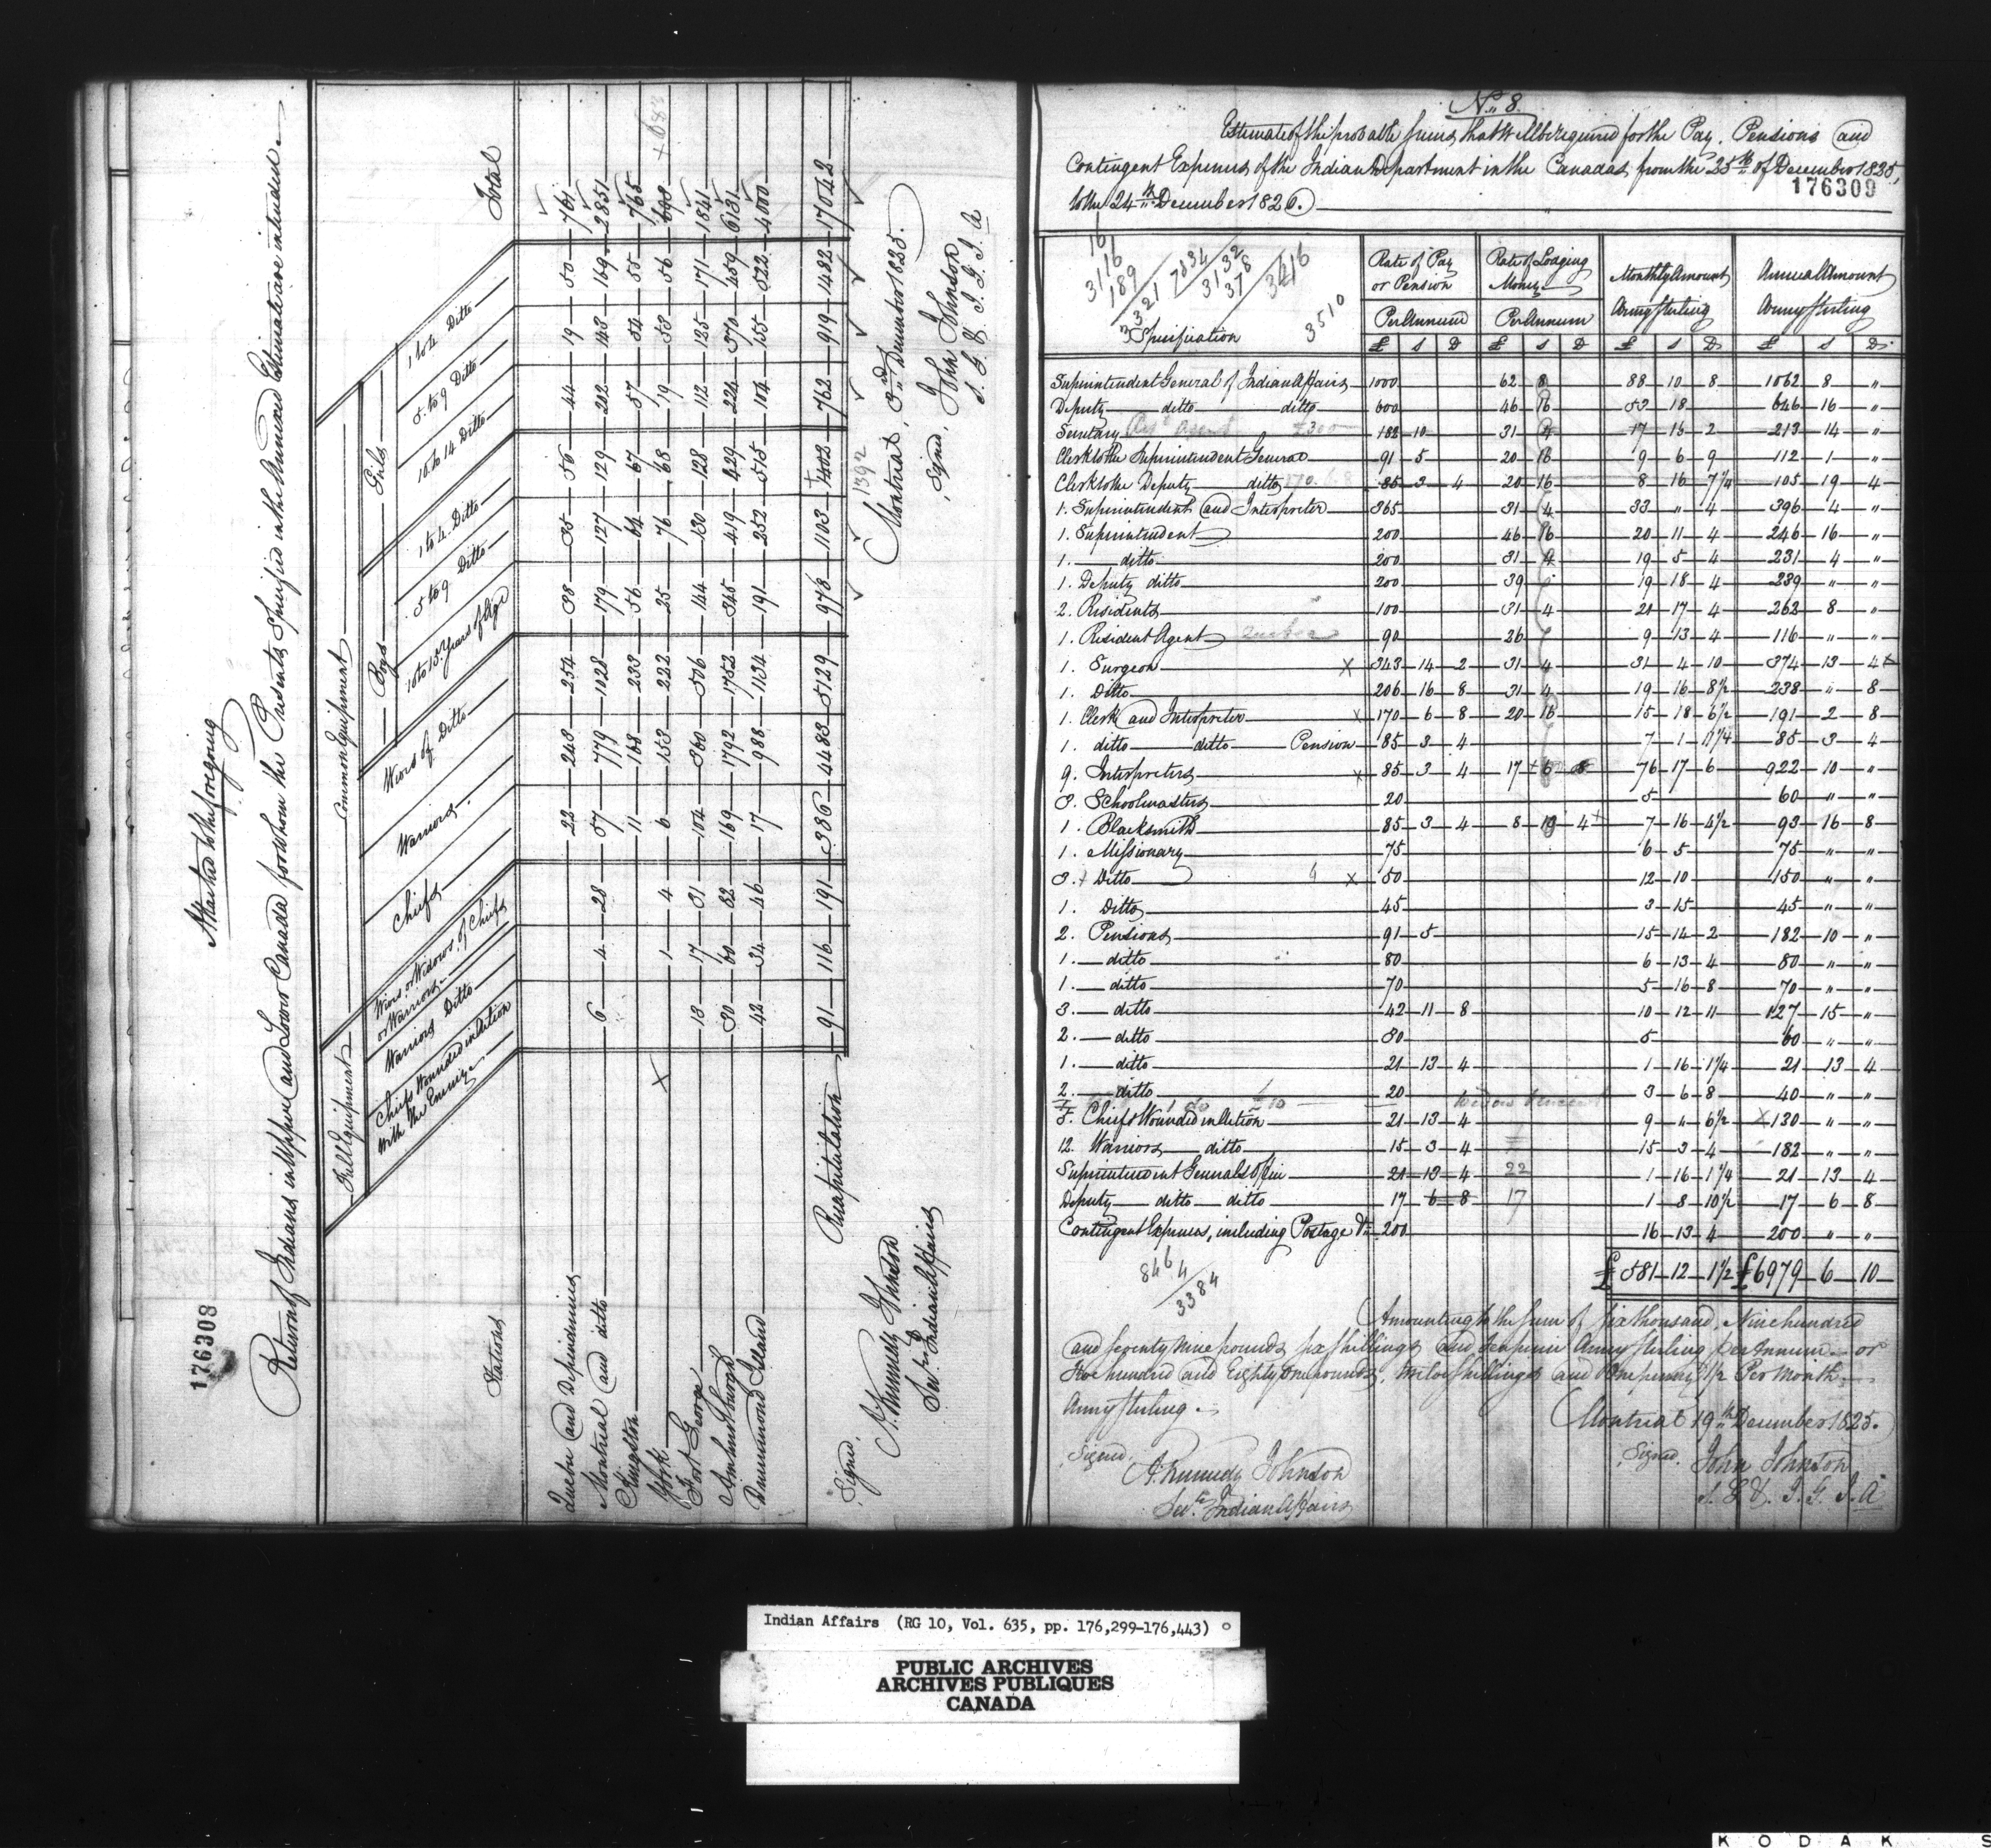 176308
Attached to the foregoing
Return of Indians in Upper and Lower Canada for whom the Presents Specified in the Annexed Estimate are intended.
Stations
Full Equipment
Common Equipment
Total
Chiefs Wounded in Action with the Enemy
Warriors Ditto
Wives or Widows of Chiefs or Warriors
Chiefs
Warriors
Wives of Ditto
Boys
10 to 15 Years of Age
5 to 9 Ditto
1 to 4 Ditto
Girls
10 to 14 Ditto
5 to 9 Ditto
1 to 4 Ditto
Quebec and Dependencies 23 243 254 38 35 56 44 19 50 761
Montreal and ditto 6 4 28 57 779 1028 179 127 129 202 143 169 2851
Kingston 11 168 233 56 64 67 57 54 55 765
York 1 4 6 153 222 25 76 68 19 53 56 698
Fort George 13 17 31 104 360 506 144 130 128 112 125 171 1841
Amherstburgh 30 60 82 169 1792 1752 345 419 429 224 370 459 6131
Drummond Island 42 34 46 17 988 1134 191 252 515 104 155 522 4000
Recapitulation 91 116 191 386 4483 5129 978 1103 1403 762 919 1482 17042
1392
Montreal, 3rd December 1825.
Signed, John Johnson
S. G. & I. G. I. A
Signed,
A. Kennedy Johnson
Secy. Indian Affairs
No. 8.
Estimate of the probable sums that will be required for the Pay, Pensions and
Contingent Expenses of the Indian Department in the Canadas from the 25th of December 1825,
176309
to the 24th December 1826.
Specification
Rate of Pay or Pension
Per Annum
Rate of Lodging Money
Per Annum
Monthly Amount Army Sterling
Annual Amount Army Sterling
£ S D £ S D £ S D £ S D
Superintendent General of Indian Affairs 1000 62 8 88 10 8 1062 8 "
Deputy ditto ditto 600 46 16 53 18 646 16 "
Secretary 182 10 31 4 17 16 2 213 14 "
Clerk to the Superintendent General 91 5 20 16 9 6 9 112 1 "
Clerk to the Deputy ditto 85 3 4 20 16 8 16 7 1/4 105 19 4
1. Superintendent and Interpreter 365 31 4 33 " 4 396 4 "
1. Superintendent 200 46 16 20 11 4 246 16 "
1. ditto 200 31 4 19 5 4 231 4 "
1. Deputy ditto 200 39 19 18 4 239 " "
2. Residents 100 31 4 21 17 4 262 8 "
1. Resident Agent 90 26 9 13 4 116 " "
1. Surgeon X 343 14 2 31 4 31 4 10 374 13 4
1. Ditto 206 16 8 31 4 19 16 8 1/2 238 " 8
1. Clerk and Interpreter X 170 6 8 20 16 15 18 6 1/2 191 2 8
1. ditto ditto Pension 85 3 4 7 1 11 1/4 85 3 4
9. Interpreters X 85 3 4 17 6 8 76 17 6 922 10 "
3. Schoolmasters 20 5 60 " "
1. Blacksmith 85 3 4 8 13 4 7 16 4 1/2 93 16 8
1. Missionary 75 6 5 75 " "
3. Ditto X 50 12 10 150 " "
1. Ditto 45 3 15 45 " "
2. Pensions 91 5 15 14 2 182 10 "
1. ditto 80 6 13 4 80 " "
1. ditto 70 5 16 8 70 " "
3. ditto 42 11 8 10 12 11 127 15 "
2. ditto 30 5 60 " "
1. ditto 21 13 4 1 16 1 1/4 21 13 4
2. ditto 20 3 6 8 40 " "
5. Chiefs Wounded in Action 21 13 4 9 " 6 1/2 X 130 " "
12. Warriors ditto 15 3 4 15 3 4 182 " "
Superintendent General's Office 21 13 4 22 1 16 1 1/4 21 13 4
Deputy ditto ditto 17 6 8 17 1 8 10 1/2 17 6 8
Contingent Expenses, including Postage &c 200 16 13 4 200 " "
£581 12 1 1/2 £6979 6 10
Amounting to the sum of six thousand, Nine hundred
and seventy nine pounds six shillings and ten pence Army sterling per Annum or
Five hundred and Eighty one pounds, twelve shillings and One penny 1/2 Per Month
Army sterling.
Montreal 19th December 1825.
Signed, A. Kennedy Johnson
Secy. Indian Affairs
Signed, John Johnson
S. G. & I. G. I. A
Indian Affairs (RG 10, Vol. 635, pp. 176,299-176,443)
PUBLIC ARCHIVES
ARCHIVES PUBLIQUES
CANADA
KODAK S